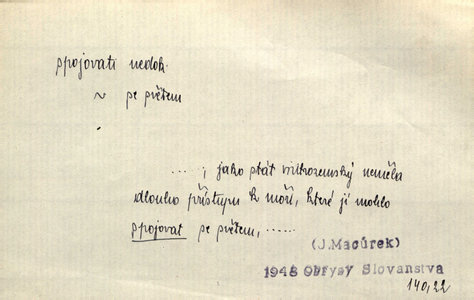 spojovati nedok.
~ se světem
....., jako stát vnitrozemský neměla
dlouho přístupu k moři, které ji mohlo
spojovat se světem, .....
(J.Macůrek)
1948 Obrysy Slovanstva
140,22